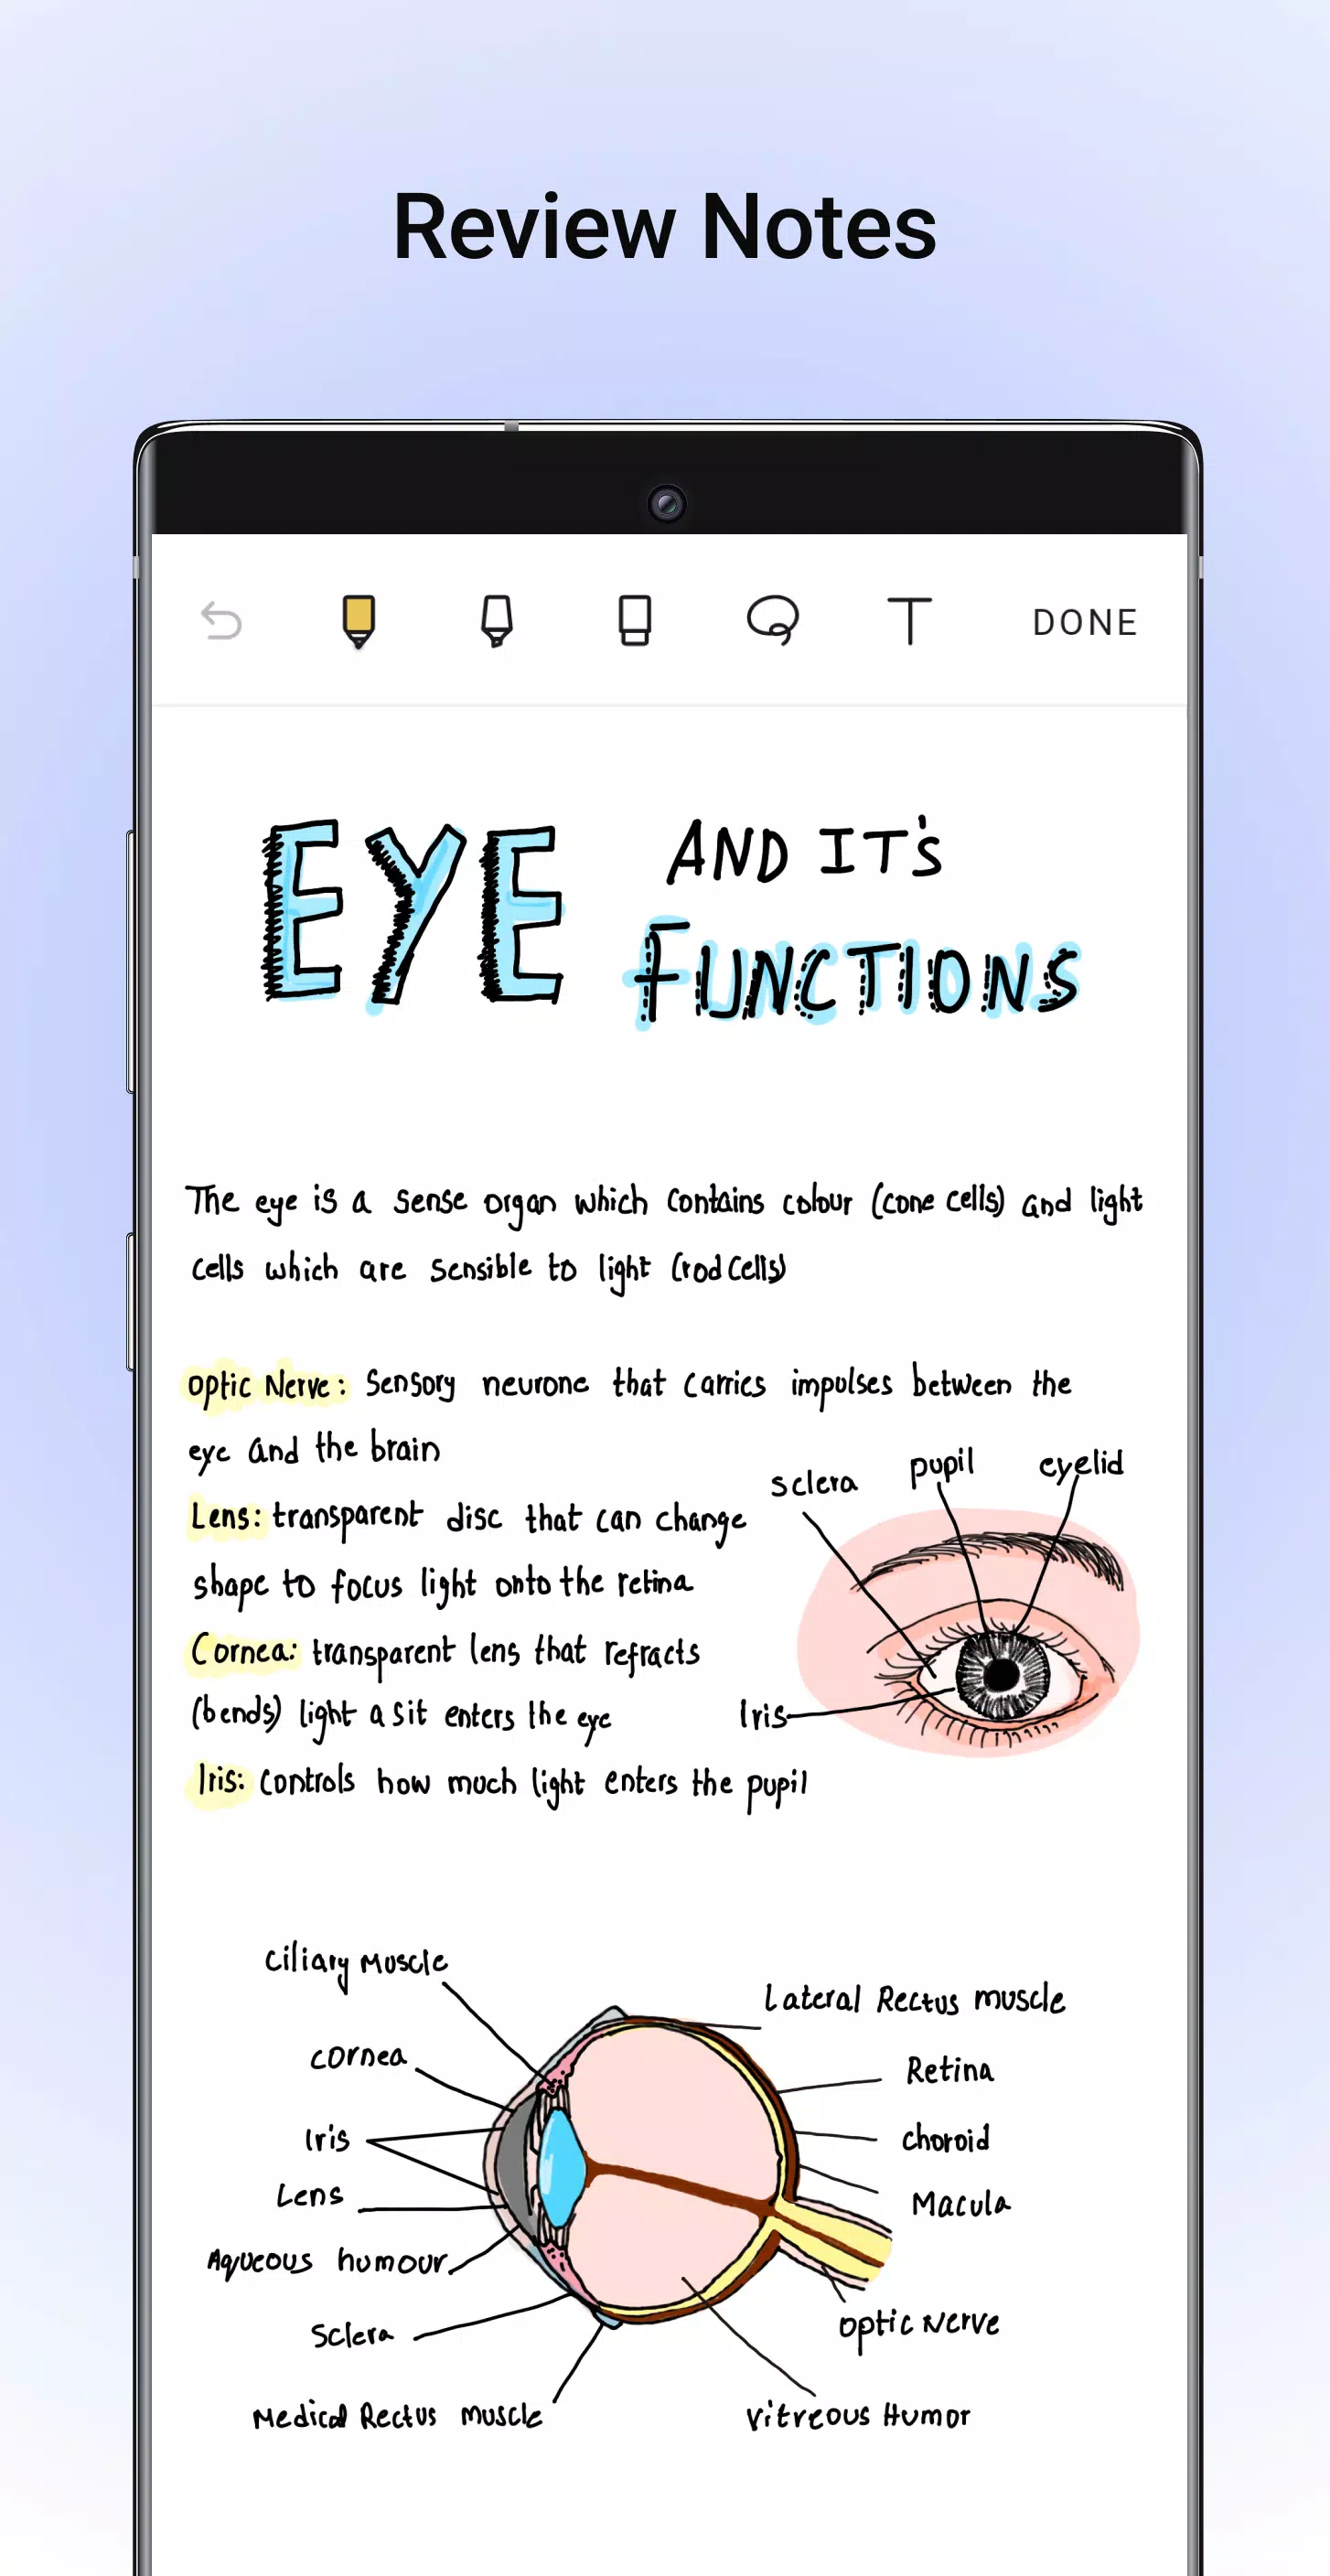 Review Notes
DONE
EYE AND IT's
FUNCTIONS
The eye is a sense organ which contains colour (cone cells) and light
cells which are sensible to light (rod cells)
optic Nerve: Sensory neurone that carries impulses between the
eye and the brain
sclera pupil eyelid
Lens: transparent disc that can change
shape to focus light onto the retina
Cornea: transparent lens that refracts
(bends) light a sit enters the eye
Iris
Iris: controls how much light enters the pupil
Ciliary Muscle
Lateral Rectus muscle
cornea
Retina
Iris
choroid
Lens
Macula
Aqueous humour
optic Nerve
Sclera
Medical Rectus muscle
Vitreous Humor